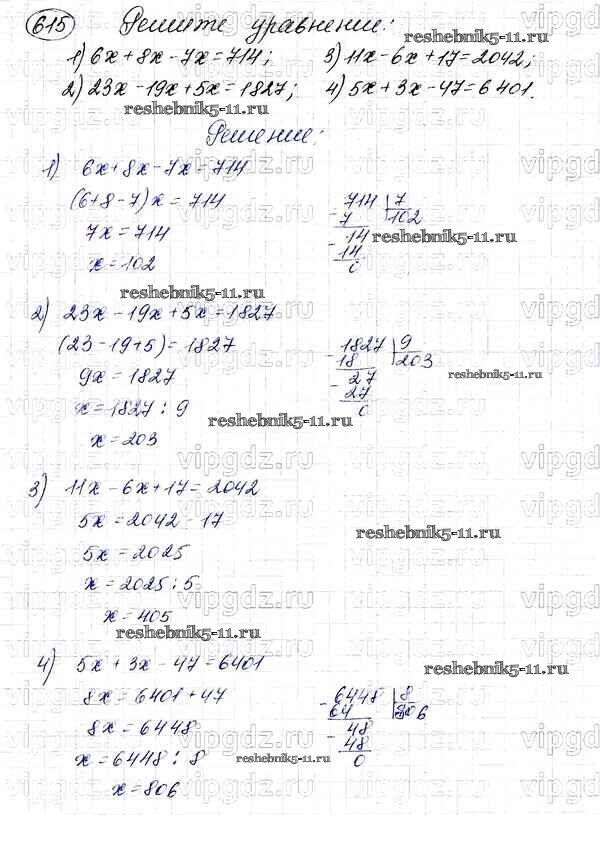 615 Решите уравнение:
1) 6x+8x-7x=714; 3) 11x-6x+17=2042;
2) 23x-19x+5x=1827; 4) 5x+3x-47=6401.
reshebnik5-11.ru
Решение:
1) 6x+8x-7x=714
(6+8-7)x=714
7x=714
x=102
714 | 7
-7 102
14
-14
0
reshebnik5-11.ru
reshebnik5-11.ru
2) 23x-19x+5x=1827
(23-19+5)=1827
9x=1827
x=1827:9
x=203
-1827 | 9
18 203
-27
27
0
reshebnik5-11.ru
reshebnik5-11.ru
3) 11x-6x+17=2042
5x=2042-17
5x=2025
x=2025:5
x=405
reshebnik5-11.ru
reshebnik5-11.ru
4) 5x+3x-47=6401
8x=6401+47
8x=6448
x=6448:8
x=806
-6448 | 8
64 806
-48
48
0
reshebnik5-11.ru
reshebnik5-11.ru
vipgdz.ru